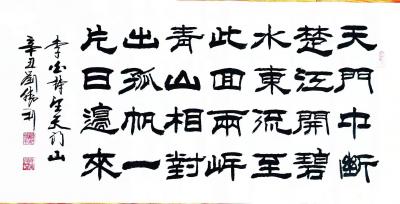 天門中斷
楚江開碧
水東流至
此回兩岸
青山相對
出孤帆一
片日邊來
李白詩望天门山
辛丑劉俊利